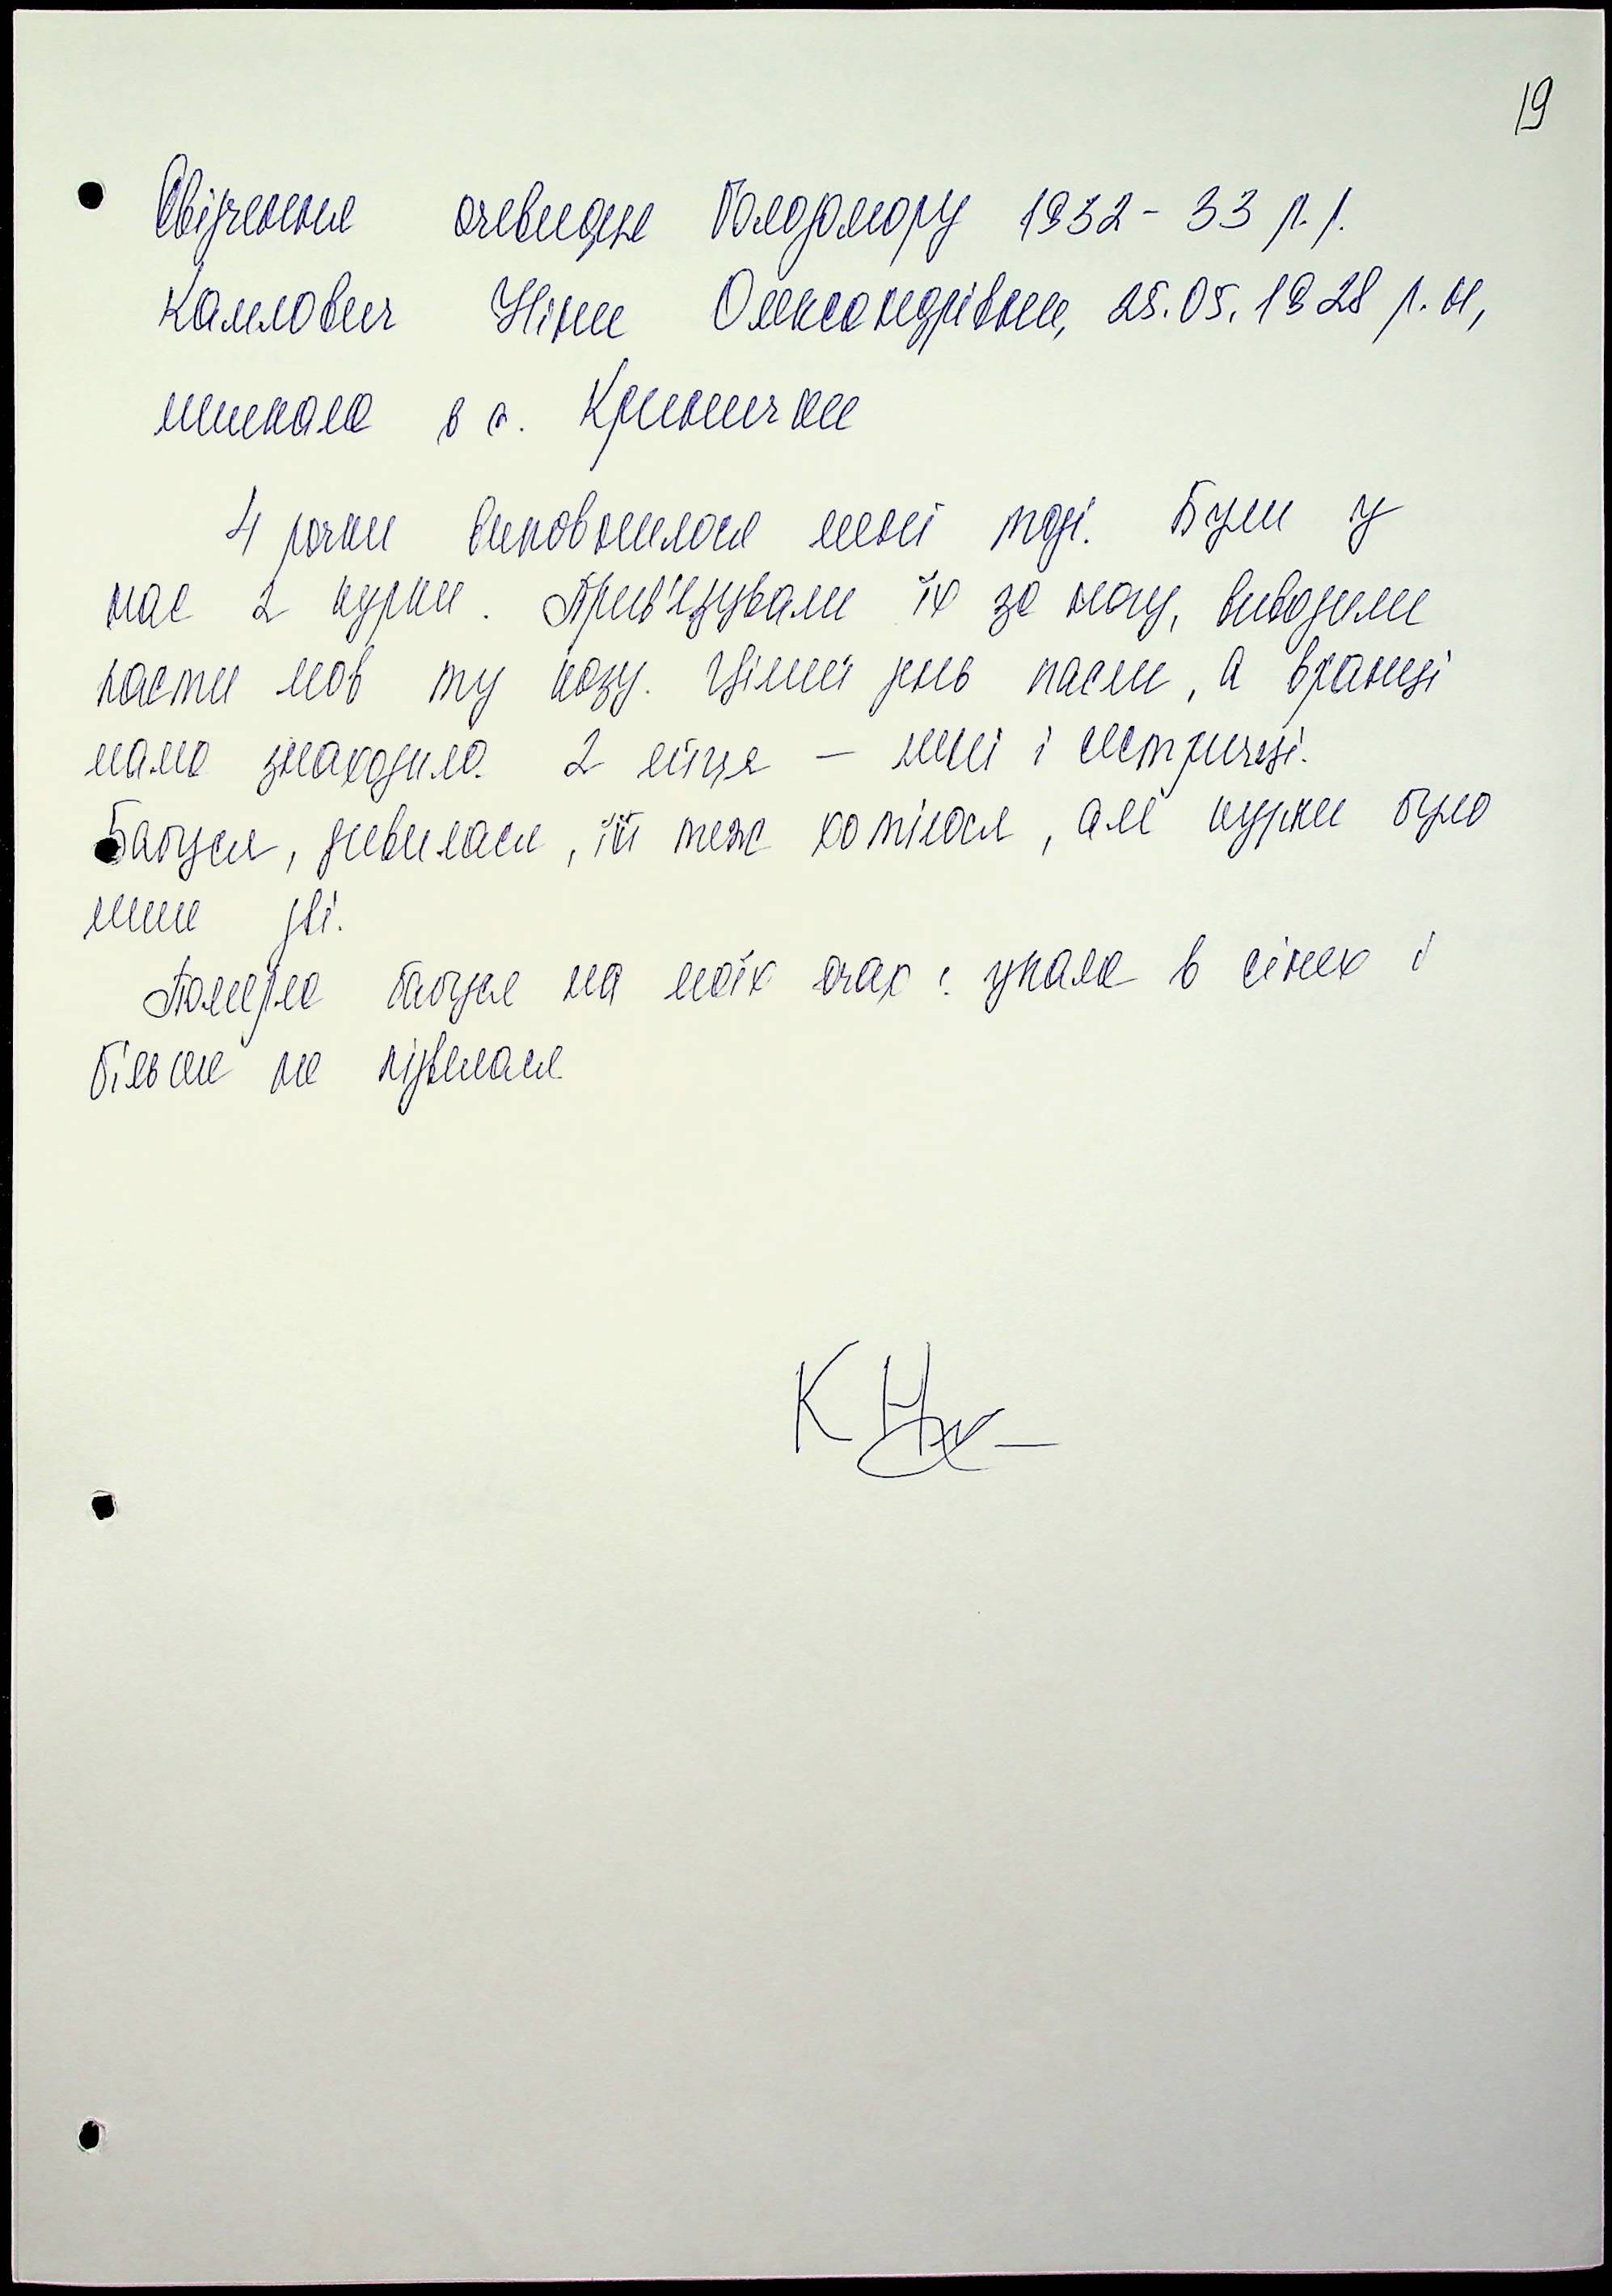 19
Свідчення очевидця Голодомору 1932-33 р.р.
Ніни Олександрівни, 25.05.1928 р.н,
мешкала в с. Кринички
4 рочки виповнилося мені тоді. Були у
нас 2 курки. Прив'язували їх за ногу, виводили
пасти мов ту козу. Цілий день пасли, а вранці
мама знаходила 2 яйця – мені і сестричці.
Бабуся, дивилася, їй теж хотілося, але курки було
лише дві.
Померла бабуся на моїх очах: упала в сінях і
більше не підвелася